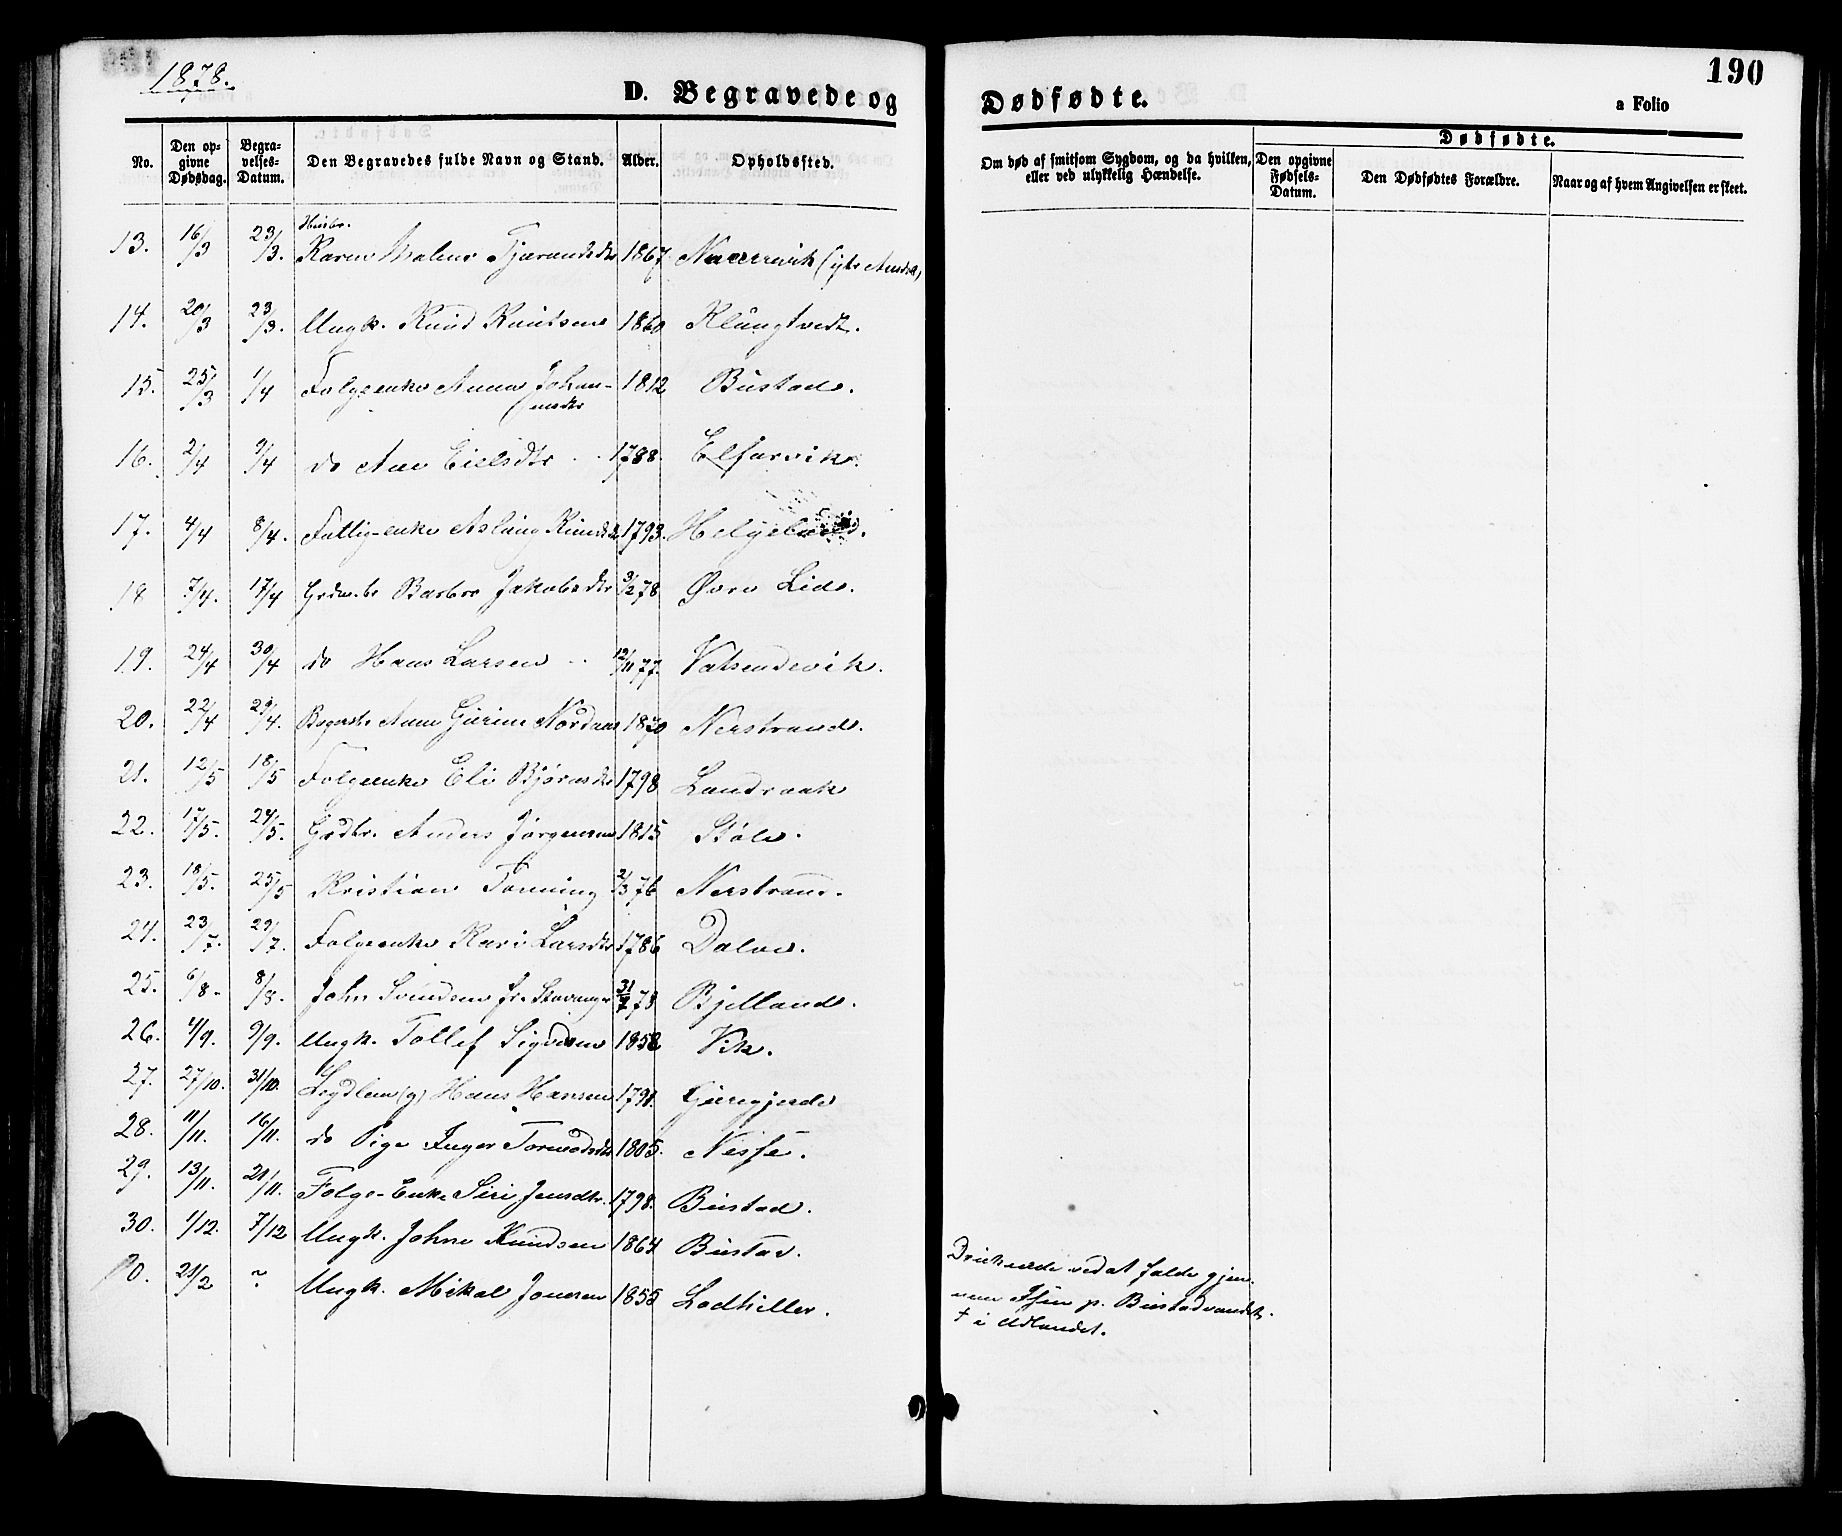 1878.
190
D. Begravede og Dødfødte.
a Folio
No.
Den opgivne Dødsdag.
Begravelses-Datum.
Den Begravedes fulde Navn og Stand.
Alder.
Opholdssted.
Om død af smitsom Sygdom, og da hvilken, eller ved ulykkelig Hændelse.
Dødfødte.
Den opgivne Fødsels-Datum.
Den Dødfødtes Forældre.
Naar og af hvem Angivelsen er skeet.
13. 16/3 23/3. Karen Malene 1867
14. 20/3 23/3. Ungk. Knud Knutsen 1860 Klungtvedt.
15. 25/3 1/4 Folgeenke Anna Johan-
nesdtr 1812 Bustad.
16. 2/4 9/4 do Ane Eielsdtr 1788. Elfarvik.
17. 4/4 8/4. Fattig-enke Aslaug 1793. Helgeland.
18 7/4. 17/4 Barbro Jakobsdtr 3/2 78 Øvre Lide.
19. 24/4 30/4 do Hans Larsen 12/11 77. Vatsendevik.
20. 22/4 29/4. Ane Gurine Nordaas 1870 Nerstrand.
21. 12/5 18/5 Folgeenke Eli 1798 Landraak
22. 17/5. 24/5. Anders Jørgensen 1815 Støle.
23. 18/5. 25/5 Kristian Tønning 2/3 76 Nerstrand.
24. 23/7. 29/7. Folgeenke Kari Larsdtr 1786 Dalve.
25. 6/8. 8/8. John Svendsen fr. Stavanger 31/7 78 Bjelland.
26. 4/9. 9/9. Ungk. Tollef 1858 Vik.
27. 27/10. 31/10. Hans Hansen 1791. Guregjerde
28. 11/11. 16/11. do Pige Inger 1805.
29. 13/11. 21/11. Folge-Enke Siri Jensdtr. 1798. Bustad.
30. 1/12. 7/12 Ungk. Johne Knudsen 1864 Bustad. Druknede ved at falde gjen-
nem Isen p. Bustadvandet.
21/2 ~ Ungk. Mikal Jonsen 1855 † i Udlandet.